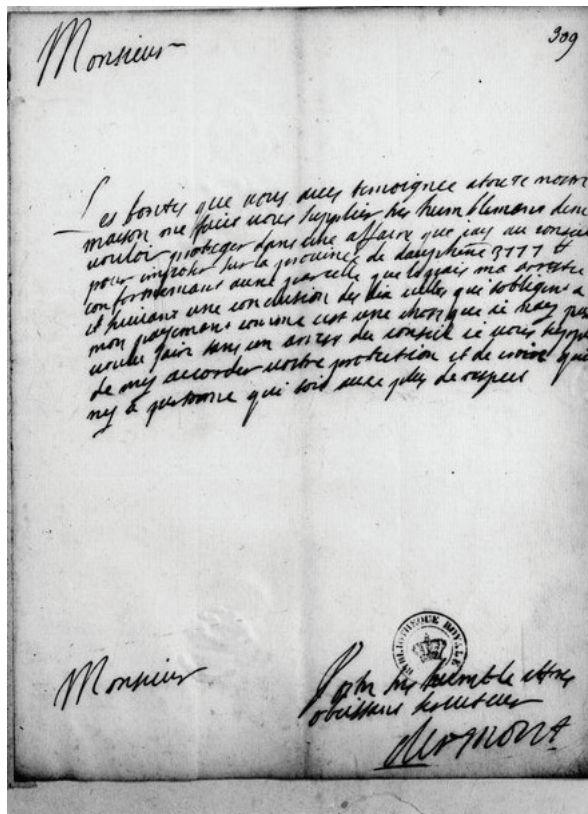 Monsieur
309
Les bontés que vous aues temoignee a toute nostre
maison me faict vous supplier tres humblemans de me
vouloir proteger dans une affaire que jay au conseil
pour imposer sur la prouince de dauphiné 3777 tt
conformemans a une parcelle que ma
et suiuans une conclusion des qui sobligent a
mon payemans comme cest une chose que je nay pas
voulu fair sans un arrest du conseil je vous supplie
de my accorder vostre protection et de croire quil
ny a personne qui soit auec plus de respect
Monsieur
BIBLIOTHEQUE ROYALE
Vostre tres humble et tres
obeissant seruiteur
Clermont